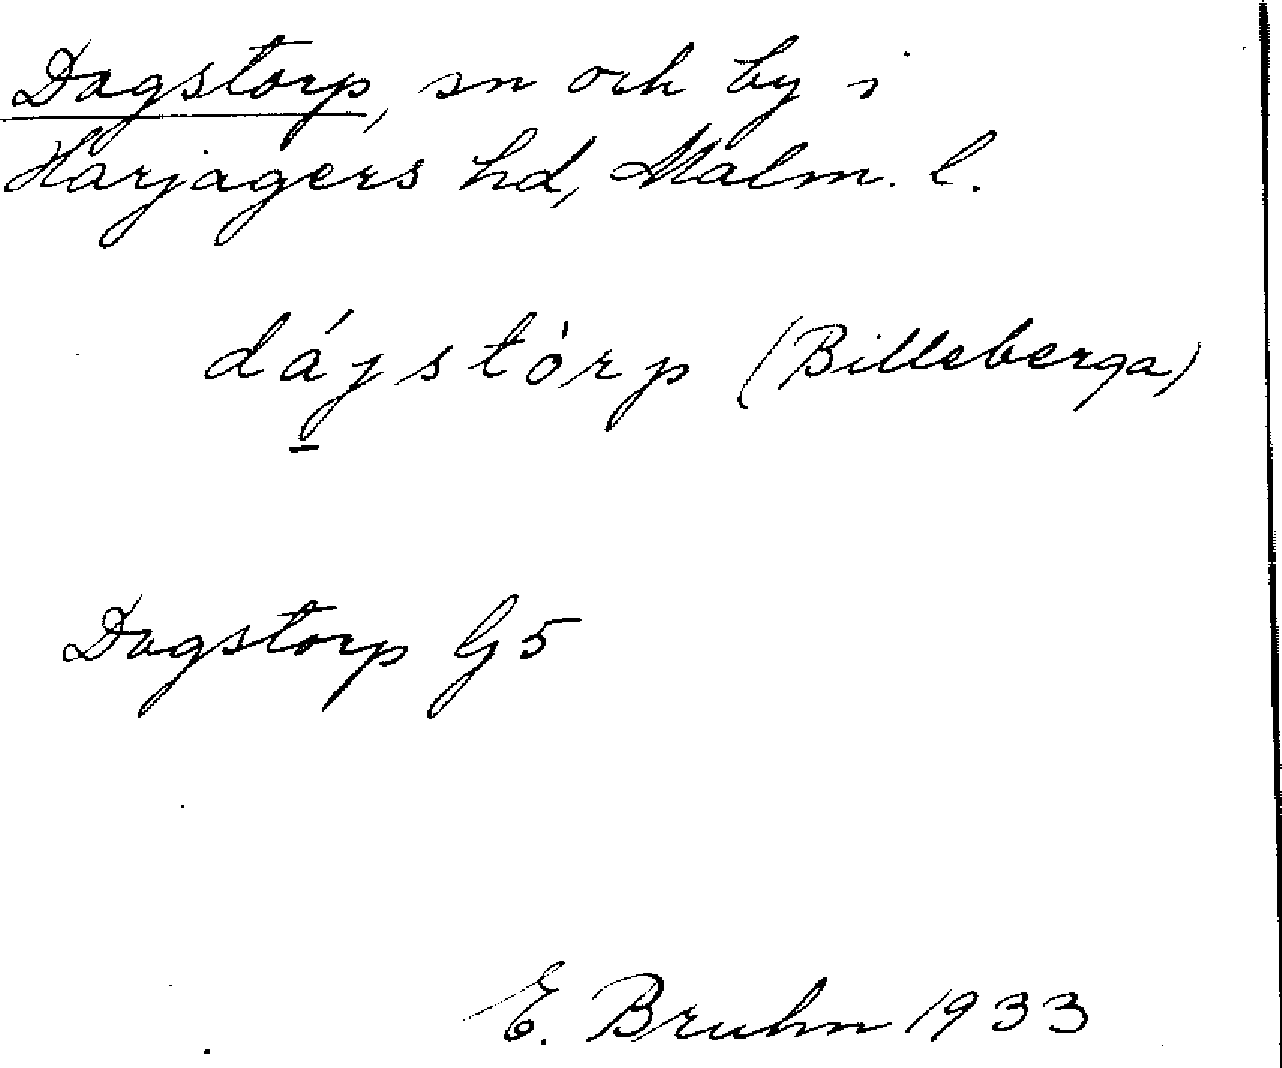 Dagstorp, sn och by i
Harjagers hd, Malm. l.
dágstòrp (Billeberga)
Dagstorp G5
E. Bruhn 1933